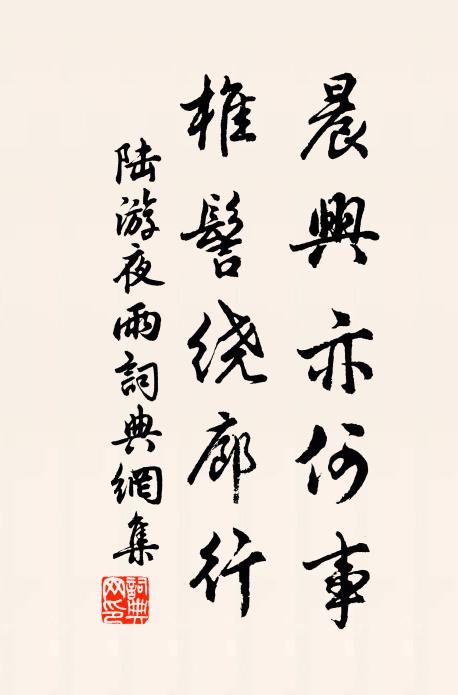 晨興亦何事
椎髻绕廊行
陆游夜雨詞典網集
詞典网印